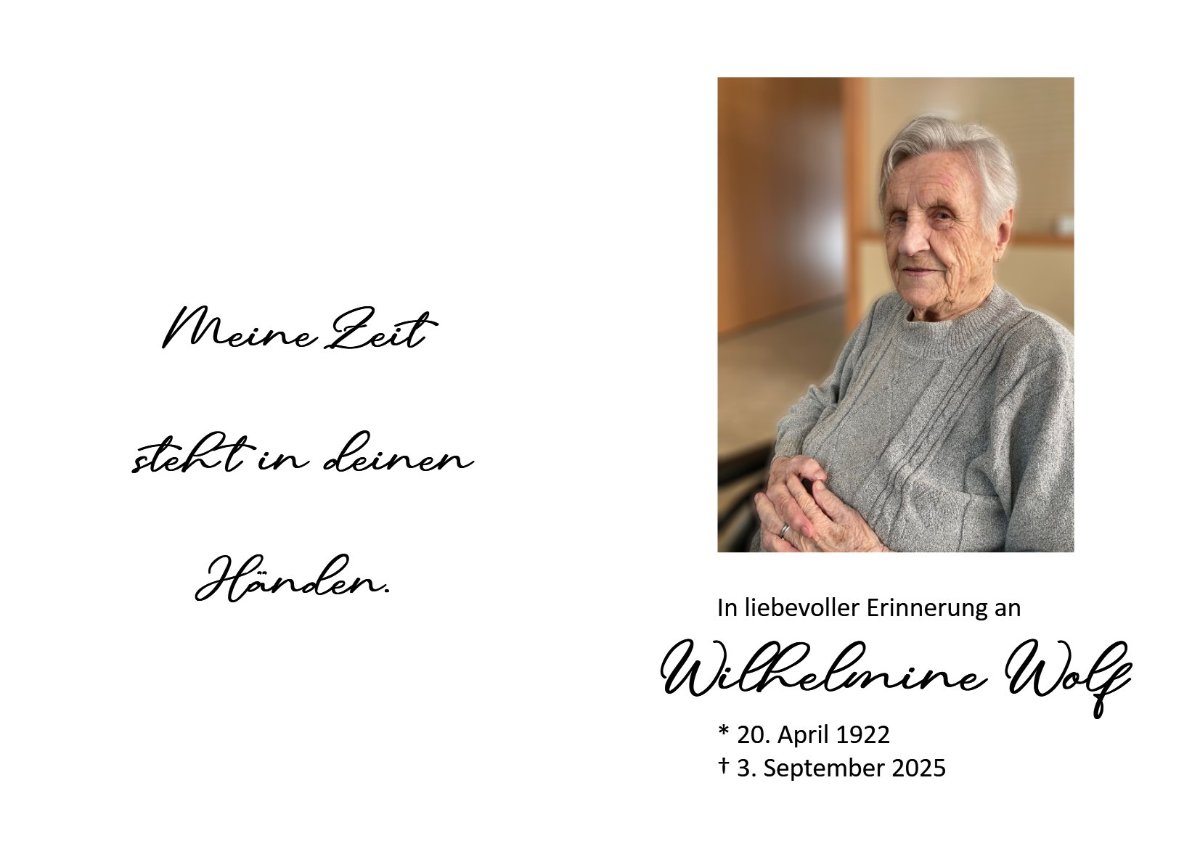 Meine Zeit
steht in deinen
Händen.
In liebevoller Erinnerung an
Wilhelmine Wolf
* 20. April 1922
† 3. September 2025